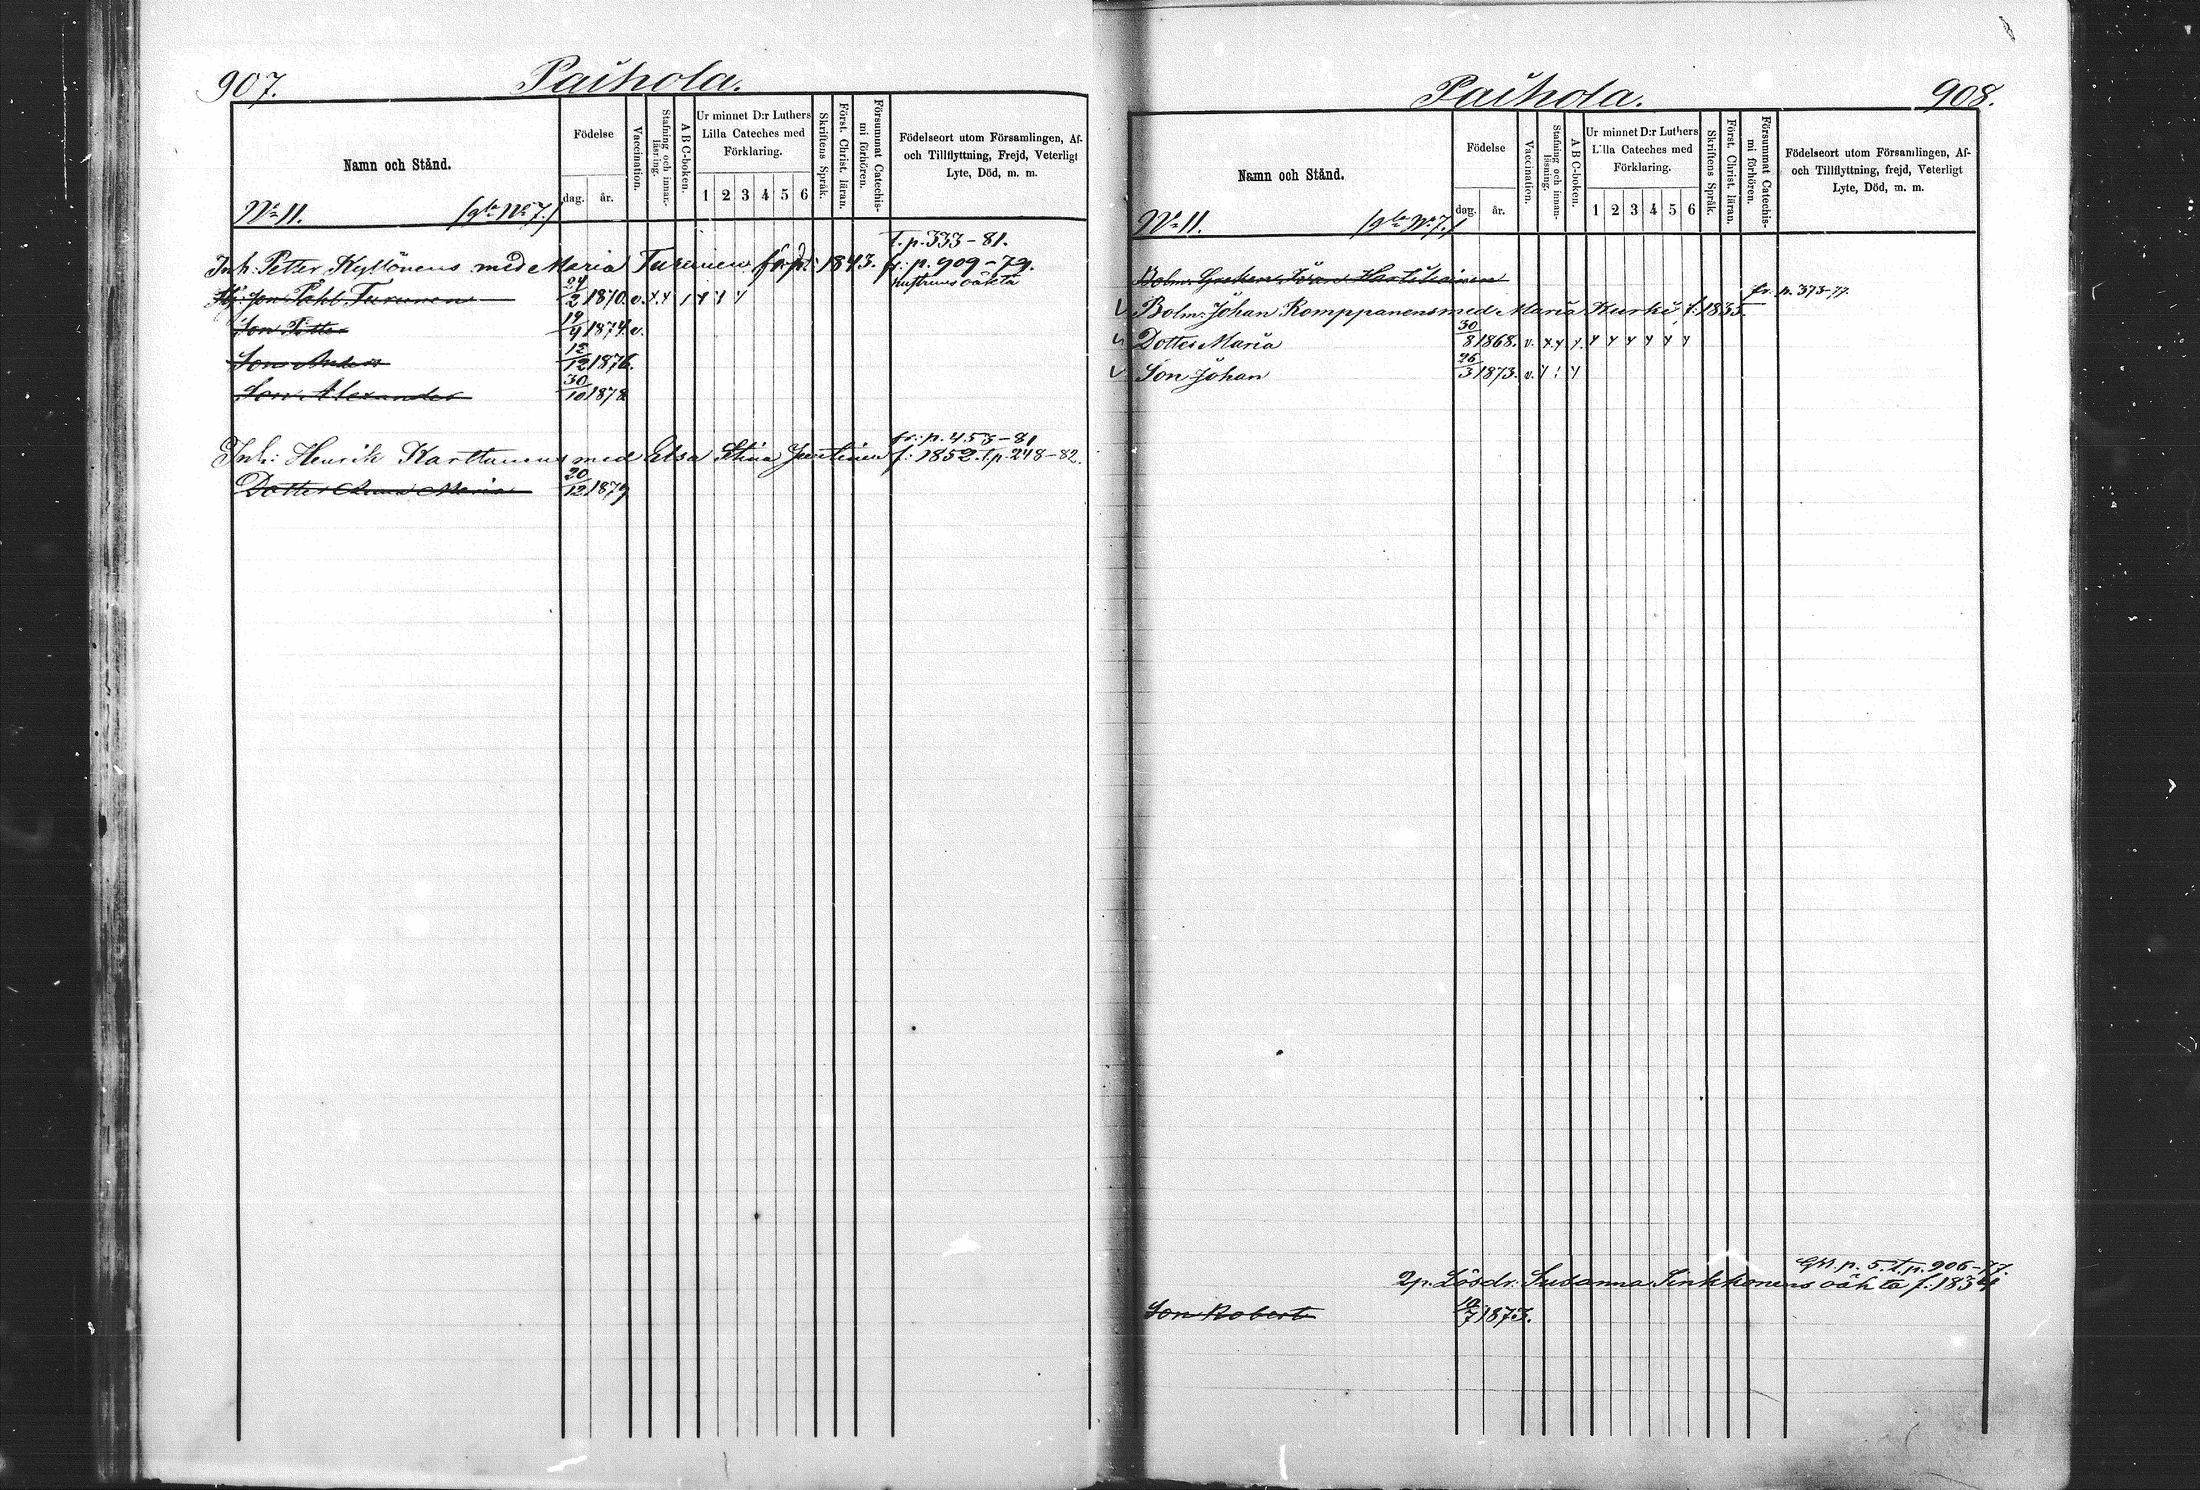 907.
Paihola.
Namn och Stånd.
Födelse
dag. år.
Vaccination.
Stafning och innan-läsning.
A B C-boken.
Ur minnet D:r Luthers
Lilla Cateches med
Förklaring.
1 2 3 4 5 6
Skriftens Språk.
Först. Christ. läran.
Försummat Catechis-
mi förhören.
Födelseort utom Församlingen, Af-
och Tillflyttning, Frejd, Veterligt
Lyte, Död, m. m.
No 11. /gla No 7./
t. p. 333-81.
Inh: Petter Kyllönens med Maria Turunen 1843. fr: p. 909-79.
Hustruns oäkta
Son Pahl Turunen 24/2 1870. v.
Son Petter 19/9 1874. v.
Son Anders 12/12 1876.
Son Alexander 30/10 1878
fr: p. 453-81
Inh: Henrik Karttunens med Elsa Stina f: 1852. t. p. 248-82.
Dotter Anna Maria 20/12 1879
Paihola.
908.
Namn och Stånd.
Födelse
dag. år.
Vaccination.
Stafning och innan-läsning.
A B C-boken.
Ur minnet D:r Luthers
Lilla Cateches med
Förklaring.
1 2 3 4 5 6
Skriftens Språk.
Först. Christ. läran.
Försummat Catechis-
mi förhören.
Födelseort utom Församlingen, Af-
och Tillflyttning, frejd, Veterligt
Lyte, Död, m. m.
No 11. /gla No 7./
Bolm. Hartikainen
fr. p. 373-77.
Bolm: Johan Romppanens med Maria Hurki f: 1833.
Dotter Maria 30/8 1868. v.
Son Johan 26/3 1873. v.
p. 5. t. p. 906-77.
Lösdr: Susanna Sinkkonens oäkta f. 1834
Son Robert 10/7 1873.